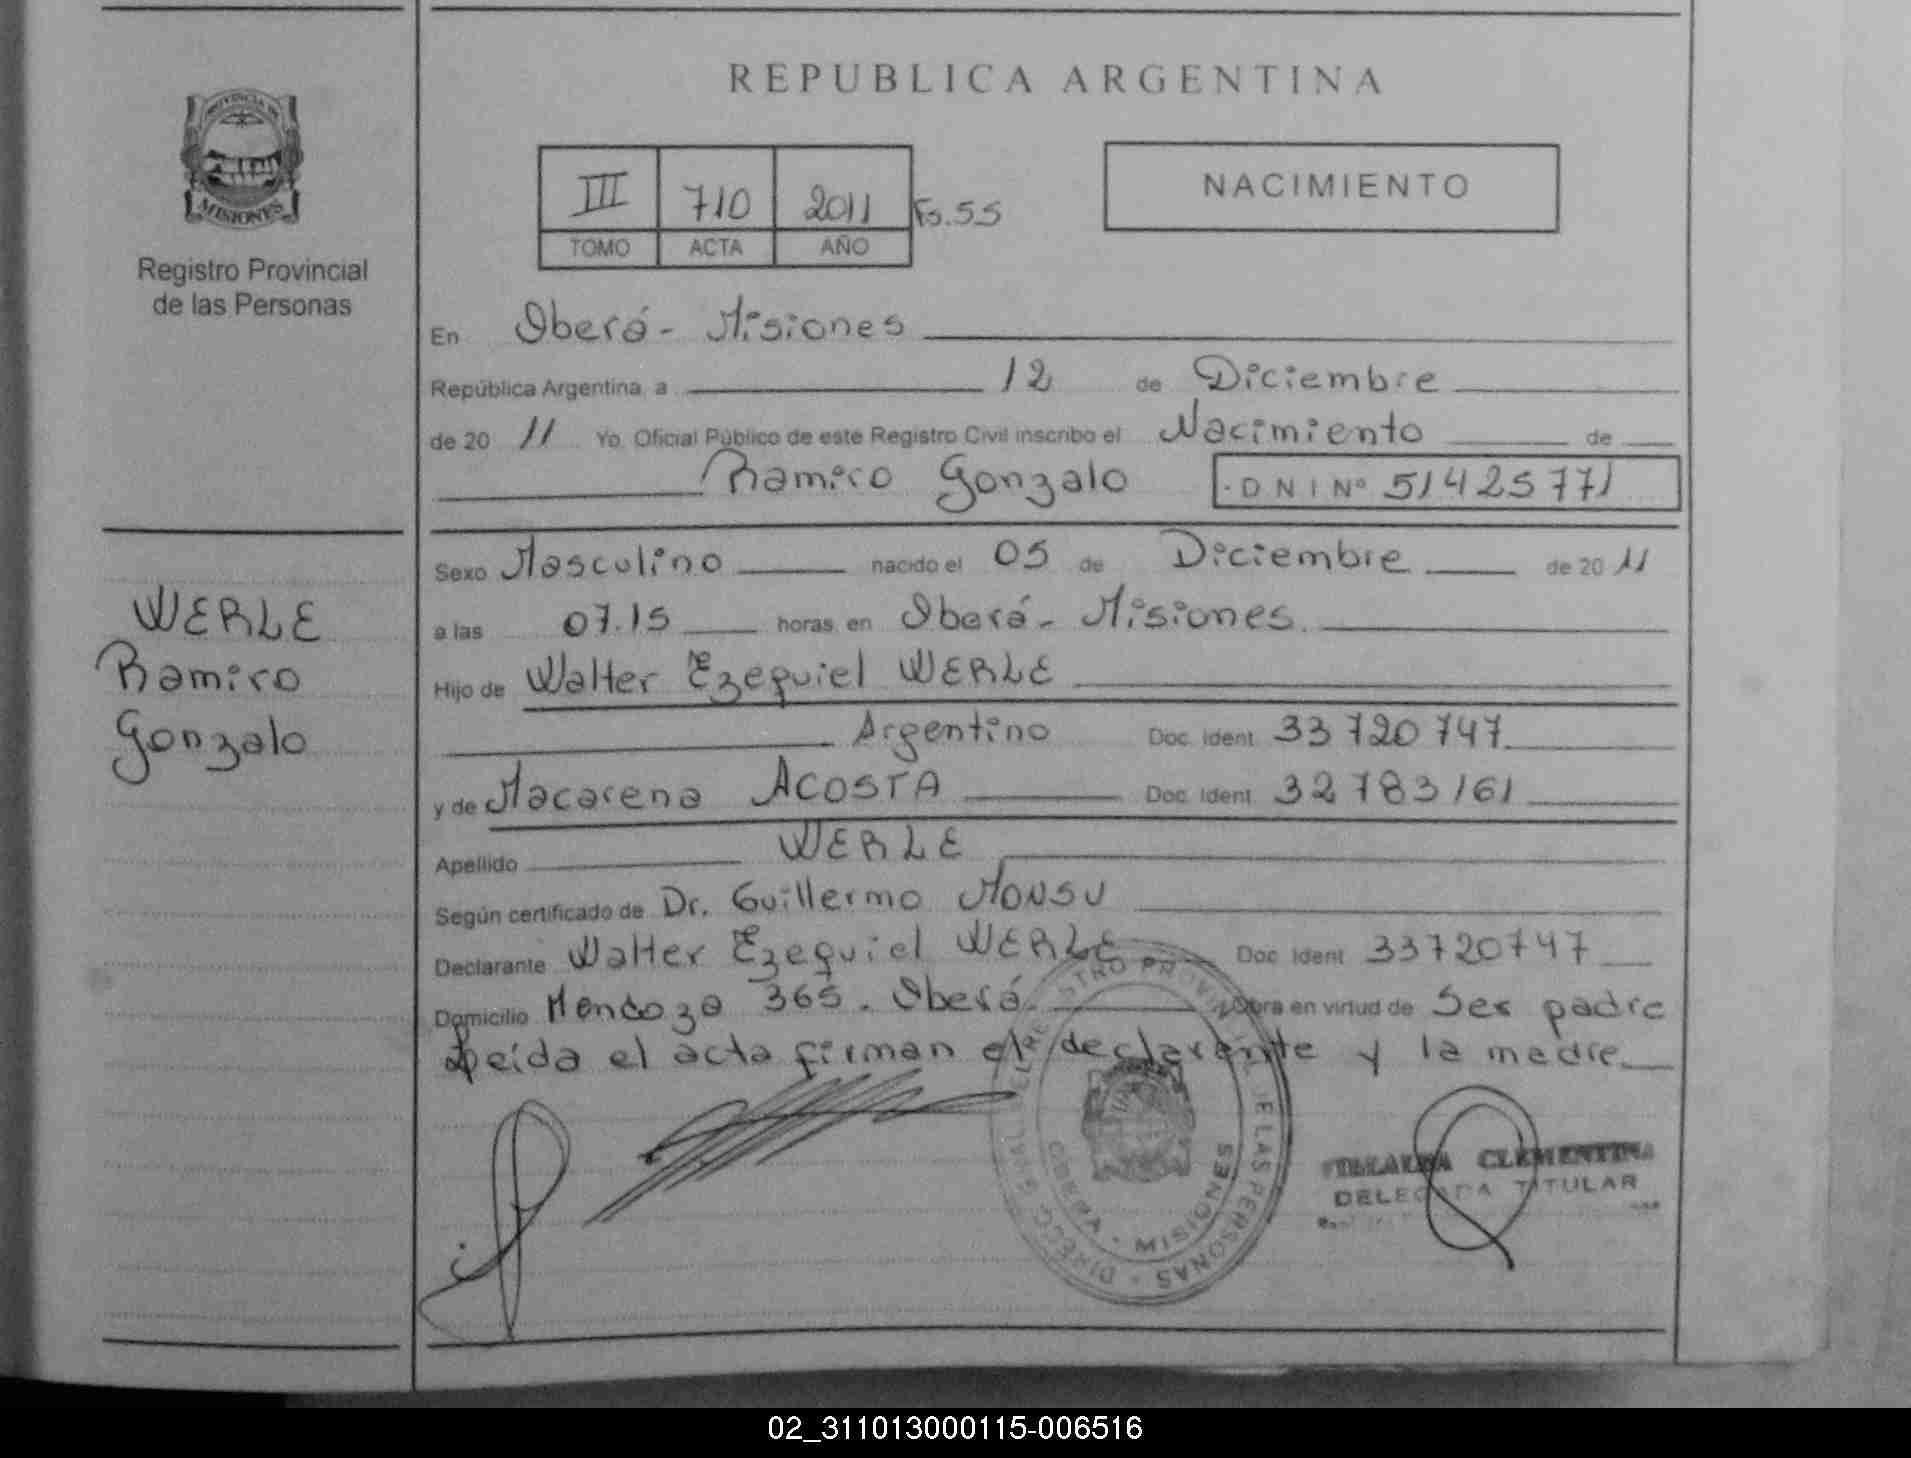 REPUBLICA ARGENTINA
PROVINCIA DE
MISIONES
Registro Provincial
de las Personas
III 710 2011 Fs.55
TOMO ACTA AÑO
NACIMIENTO
En Oberá - Misiones
República Argentina, a 12 de Diciembre
de 20 11 Yo, Oficial Público de este Registro Civil inscribo el Nacimiento de
Ramiro Gonzalo DNI Nº 51425771
WERLE
Ramiro
Gonzalo
Sexo Masculino nacido el 05 de Diciembre de 20 11
a las 07.15 horas, en Oberá - Misiones.
Hijo de Walter Ezequiel WERLE
Argentino Doc. Ident. 33720747
y de Macarena ACOSTA Doc. Ident. 32783161
Apellido WERLE
Según certificado de Dr. Guillermo MONSU
Declarante Walter Ezequiel WERLE Doc. Ident. 33720747
Domicilio Mendoza 365. Oberá. Obra en virtud de Ser padre
Leída el acta firman el declarante y la madre
DIRECC. GRAL. DEL REGISTRO PROVINCIAL DE LAS PERSONAS
OBERA - MISIONES
VILLALBA CLEMENTINA
DELEGADA TITULAR
02_311013000115-006516